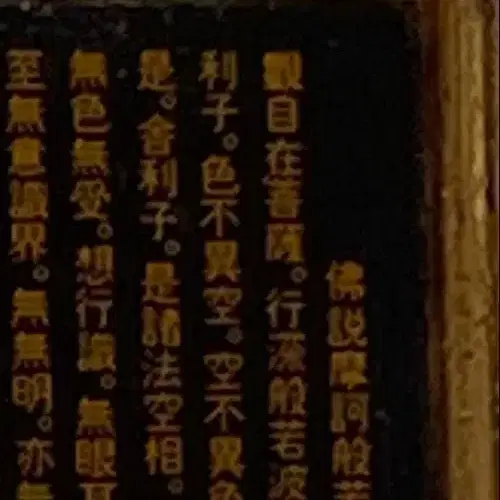 佛説摩訶般若
觀自在菩薩。行深般若波
利子。色不異空。空不異色
是。舍利子。是諸法空相。
無色無受。想行識。無眼耳
至無意識界。無無明。亦無